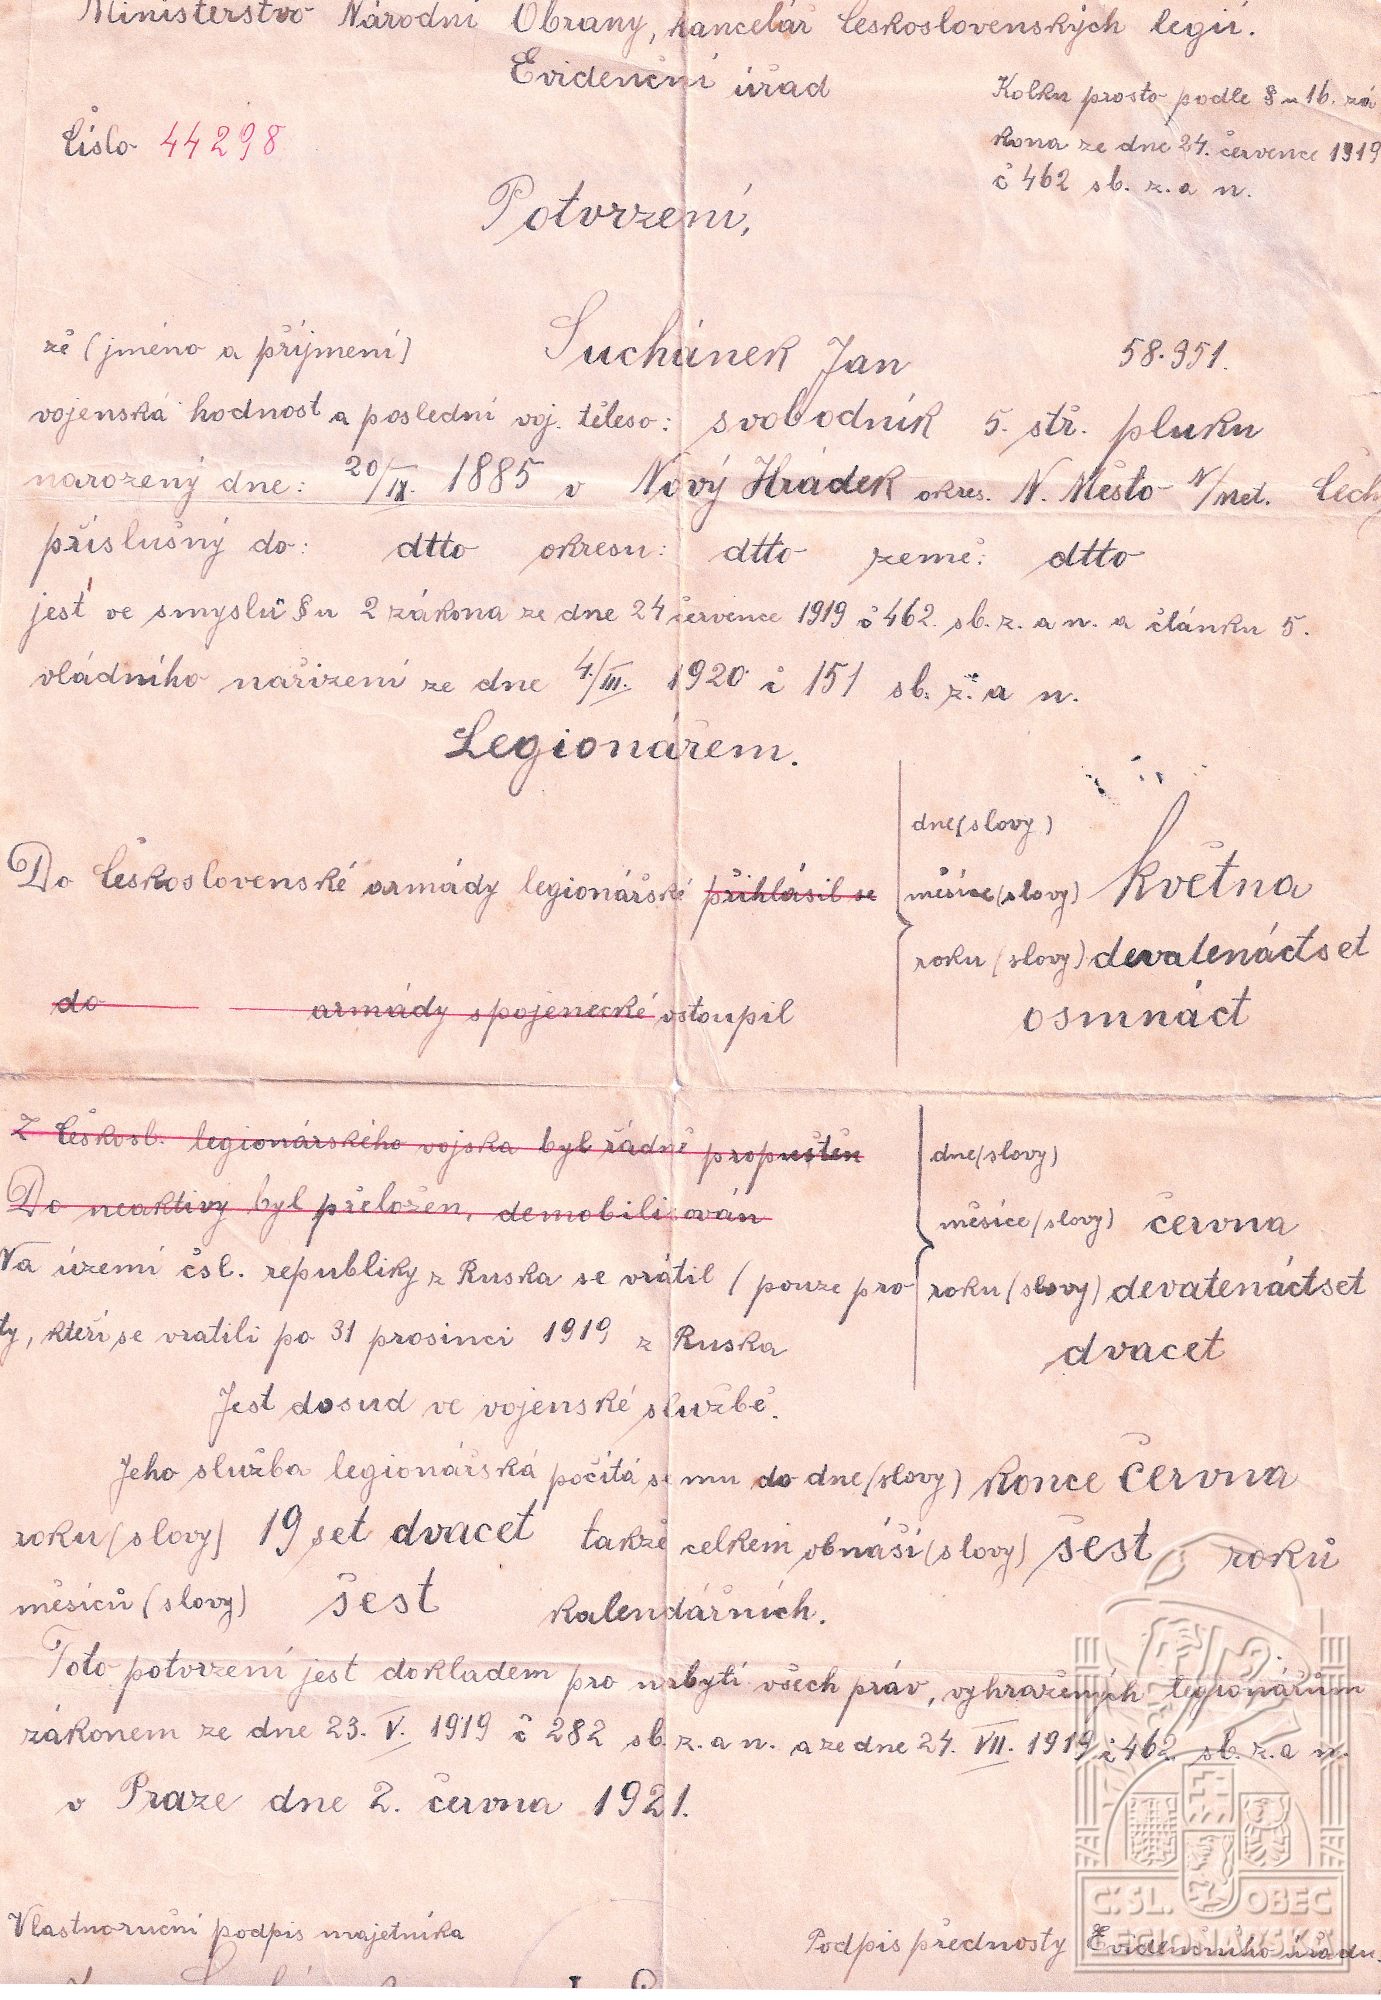 Ministerstvo Národní Obrany, kancelář československých legií.
Evidenční úřad
Kolku prosto podle § u 16. zá
kona ze dne 24. července 1919
č 462 sb. z. a n.
Číslo 44298
Potvrzení,
že (jméno a příjmení) Suchánek Jan 58.951.
vojenská hodnost a poslední voj. těleso: svobodník 5. stř. pluku
narozený dne: 20/IX. 1885 v Nový Hrádek okres. N. Město N/Met. Čechy
příslušný do: dtto okresu: dtto země: dtto
jest ve smyslu § u 2 zákona ze dne 24 července 1919 č 462. sb. z. a n. a článku 5.
vládního nařízení ze dne 4./III. 1920 č 151 sb. z. a n.
Legionářem.
Do československé armády legionářské přihlásil se
do armády spojenecké vstoupil
dne (slovy)
měsíce (slovy) května
roku (slovy) devatenáctset
osmnáct
Z českosl. legionárského vojska byl řádně propuštěn
Do neaktivy byl přeložen, demobilisován
Na území čsl. republiky z Ruska se vrátil (pouze pro
ty, kteří se vratili po 31 prosinci 1919 z Ruska
dne (slovy)
měsíce (slovy) června
roku (slovy) devatenáctset
dvacet
Jest dosud ve vojenské službě.
Jeho služba legionářská počítá se mu do dne (slovy) konce června
roku (slovy) 19 set dvacet takže celkem obnáší (slovy) šest roků
měsíců (slovy) šest kalendářních.
Toto potvrzení jest dokladem pro nabytí všech práv, vyhražených legionářům
zákonem ze dne 23. V. 1919 č 282 sb. z. a n. a ze dne 24. VII. 1919 č 462 sb. z. a n.
v Praze dne 2. června 1921.
Vlastnoruční podpis majetníka
Podpis přednosty Evidenčního úřadu.
ČSL. OBEC
LEGIONÁŘSKÁ